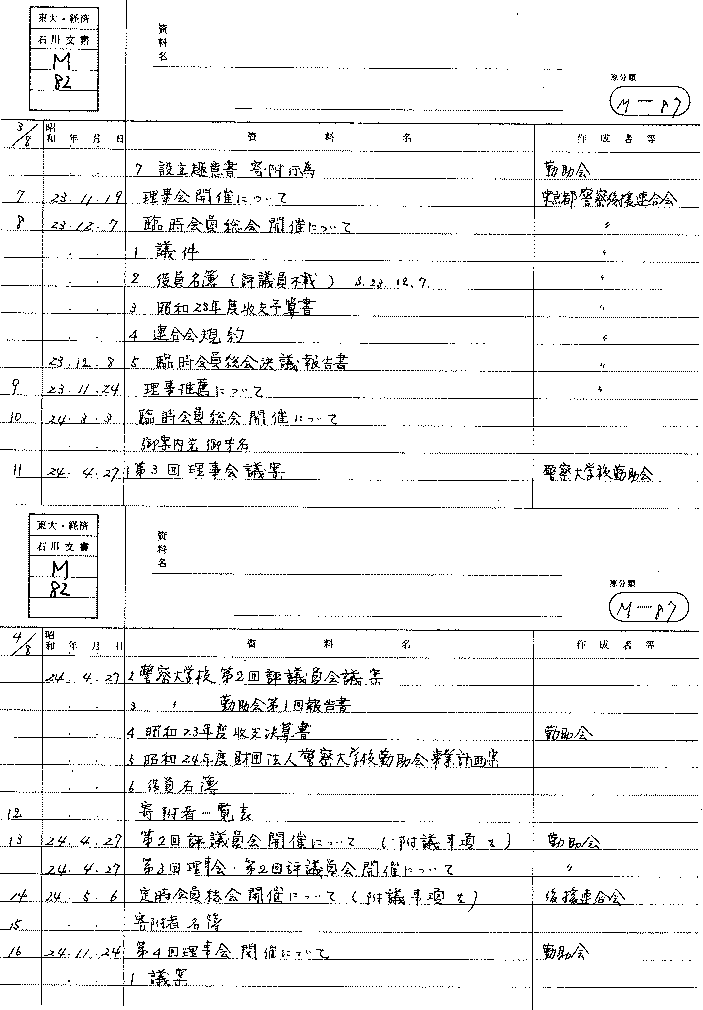 東大・経済
石川文書
M
82
資料名
原分類
M-87
3/8 昭和 年 月 日 資料名 作成者等
7 設立趣意書 寄附行為 勤助会
7 23.11.19 理事会開催について 東京都警察後援連合会
8 23.12.7 臨時会員総会開催について 〃
1 議件 〃
2 役員名簿(評議員不載) S.23.12.7 〃
3 昭和23年度収支予算書 〃
4 連合会規約 〃
23.12.8 5 臨時会員総会決議報告書 〃
9 23.11.24 理事推薦について 〃
10 24.3.3 臨時会員総会開催について
御案内宛御芳名
11 24.4.27 1 第3回理事会議案 警察大学校勤助会
東大・経済
石川文書
M
82
資料名
原分類
M-87
4/8 昭和 年 月 日 資料名 作成者等
24.4.27 2 警察大学校第2回評議員会議案
3 〃 勤助会第1回報告書
4 昭和23年度収支決算書 勤助会
5 昭和24年度財団法人警察大学校勤助会事業計画案
6 役員名簿
12 寄附者一覧表
13 24.4.27 第2回評議員会開催について (附議事項を) 勤助会
24.4.27 第3回理事会・第2回評議員会開催について 〃
14 24.5.6 定時会員総会開催について(附議事項を) 後援連合会
15 寄附者名簿
16 24.11.24 第4回理事会開催について 勤助会
1 議案